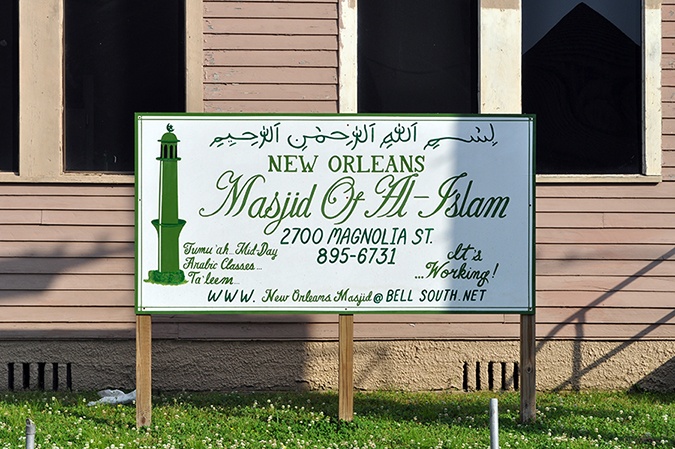 بِسْمِ اللهِ الرَّحْمٰنِ الرَّحِيمِ
NEW ORLEANS
Masjid Of Al-Islam
2700 MAGNOLIA ST.
895-6731
Jumu'ah... Mid-Day
Arabic Classes...
Ta'leem...
It's
...Working!
WWW. New Orleans Masjid@BELL SOUTH.NET